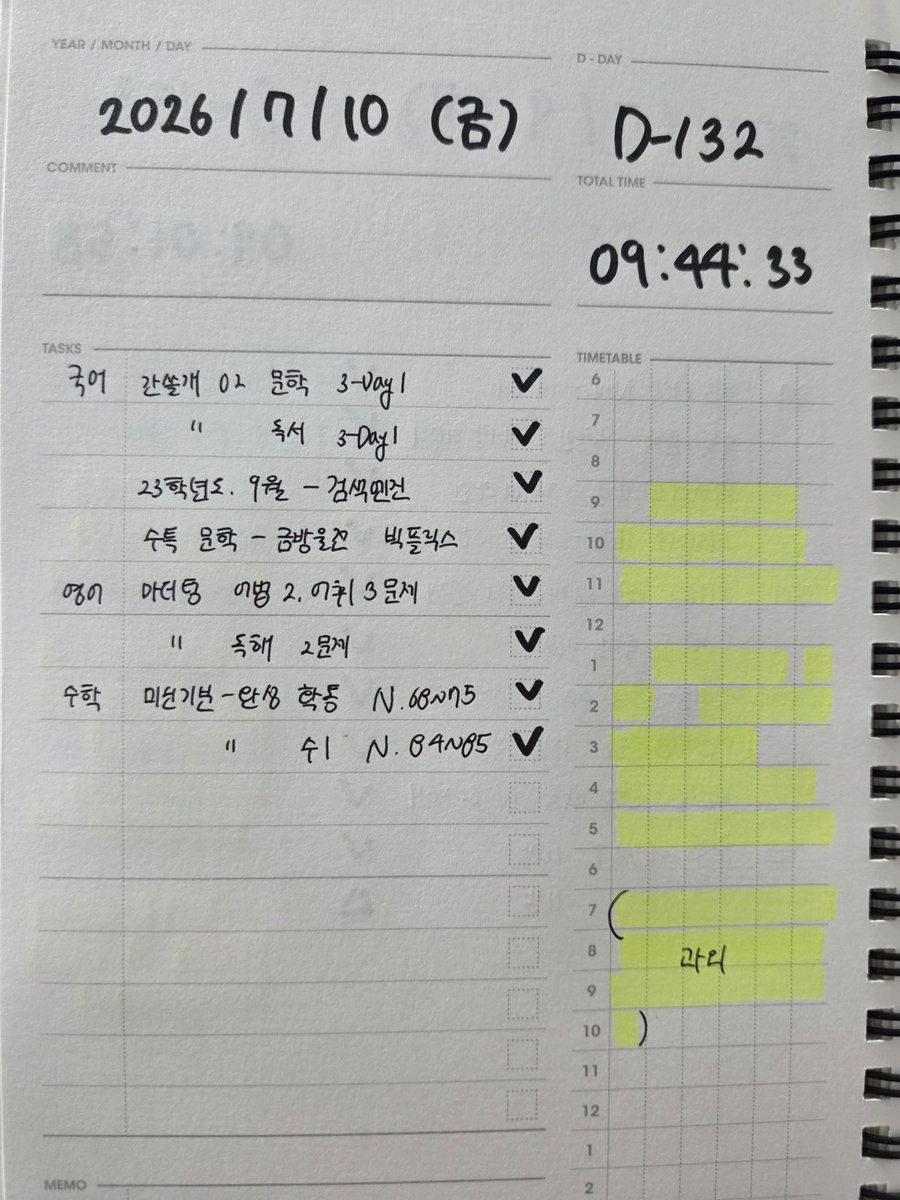 YEAR / MONTH / DAY
2026/7/10 (금)
D - DAY
D-132
COMMENT
TOTAL TIME
09:44:33
TASKS
국어 간쓸개 02 문학 3-Day1
" 독서 3-Day1
23학년도. 9월 - 검색엔진
수특 문학 - 금방울전 빅플릭스
영어 마더텅 어법 2, 어휘 3문제
" 독해 2문제
수학 미친기분-완성 확통 N.68~75
" 수1 N. 84~85
MEMO
TIMETABLE
6
7
8
9
10
11
12
1
2
3
4
5
6
7 (
8 과외
9
10 )
11
12
1
2